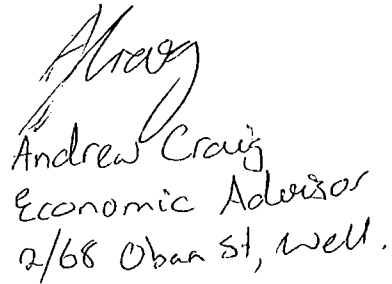 ACraig
Andrew Craig
Economic Advisor
2/68 Oban St, Well.